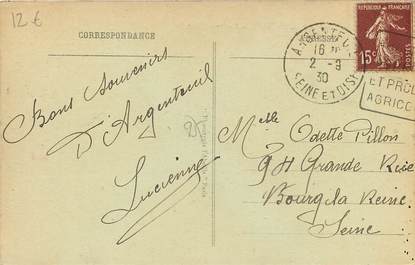 12 €
CORRESPONDANCE
REPUBLIQUE FRANÇAISE
15c
POSTES
ARGENTEUIL
16
2 - 9
30
SEINE ET OISE
ET PROD
AGRICO
Bons Souvenirs
D'Argenteuil
Lucienne
Melle Odette Pillon
94 Grande Rue
Bourg la Reine
Seine